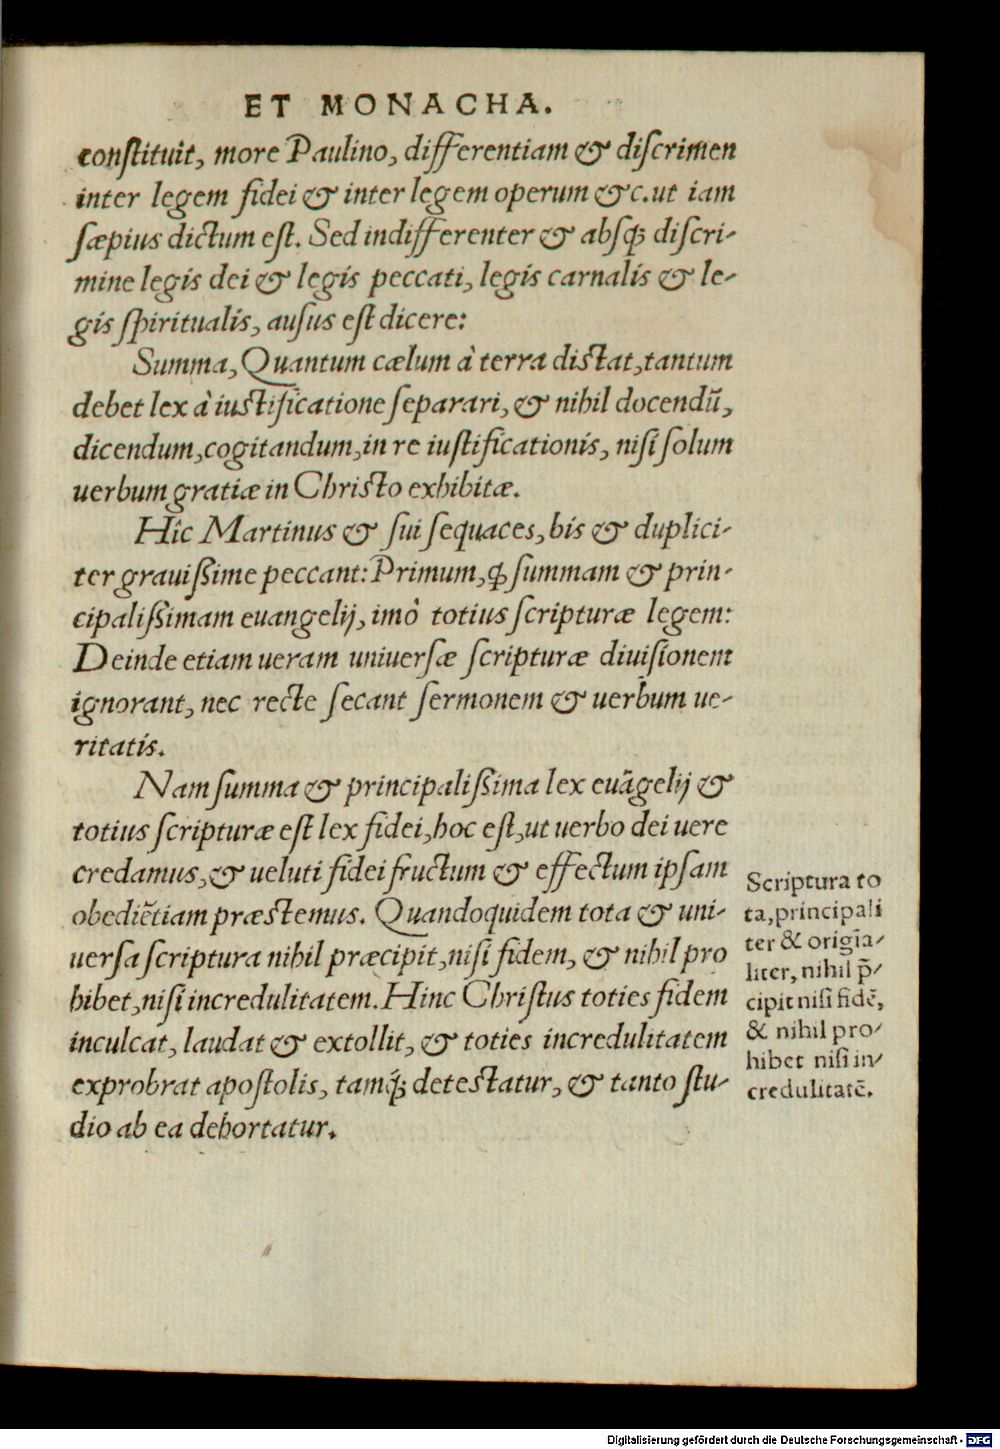 ET MONACHA.
constituit, more Paulino, differentiam & discrimen
inter legem fidei & inter legem operum &c. ut iam
sæpius dictum est. Sed indifferenter & absq; discri-
mine legis dei & legis peccati, legis carnalis & le-
gis spiritualis, ausus est dicere:
Summa, Quantum cælum à terra distat, tantum
debet lex à iustificatione separari, & nihil docendũ,
dicendum, cogitandum, in re iustificationis, nisi solum
uerbum gratiæ in Christo exhibitæ.
Hîc Martinus & sui sequaces, bis & duplici-
ter grauißime peccant: Primum, ꝙ summam & prin-
cipalißimam euangelij, imò totius scripturæ legem:
Deinde etiam ueram uniuersæ scripturæ diuisionem
ignorant, nec recte secant sermonem & uerbum ue-
ritatis.
Nam summa & principalißima lex euãgelij &
totius scripturæ est lex fidei, hoc est, ut uerbo dei uere
credamus, & ueluti fidei fructum & effectum ipsam
obediẽtiam præstemus. Quandoquidem tota & uni-
uersa scriptura nihil præcipit, nisi fidem, & nihil pro
hibet, nisi incredulitatem. Hinc Christus toties fidem
inculcat, laudat & extollit, & toties incredulitatem
exprobrat apostolis, tamq́; detestatur, & tanto stu-
dio ab ea dehortatur.
Scriptura to
ta, principali
ter & origĩa-
liter, nihil p̃-
cipit nisi fidẽ,
& nihil pro-
hibet nisi in-
credulitatẽ.
Digitalisierung gefördert durch die Deutsche Forschungsgemeinschaft - DFG